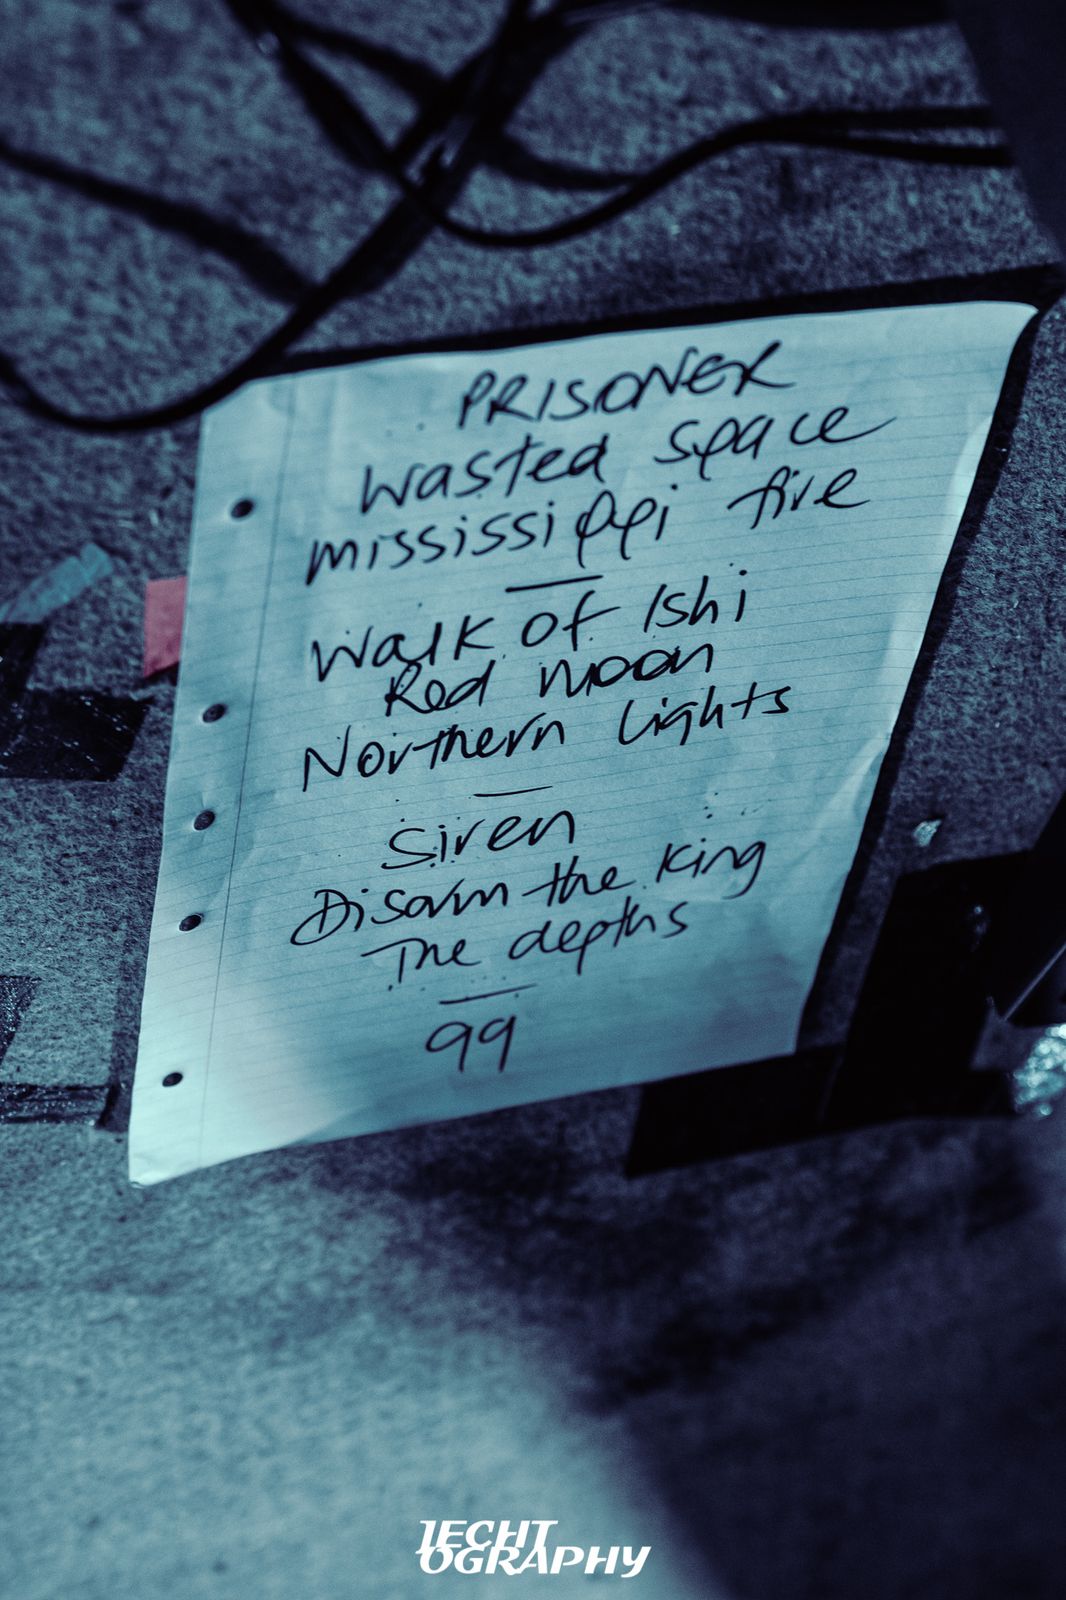 PRISONER
Wasted Space
mississippi fire
Walk of Ishi
Red moon
Northern Lights
Siren
Disarm the King
The depths
99
IECHT
OGRAPHY